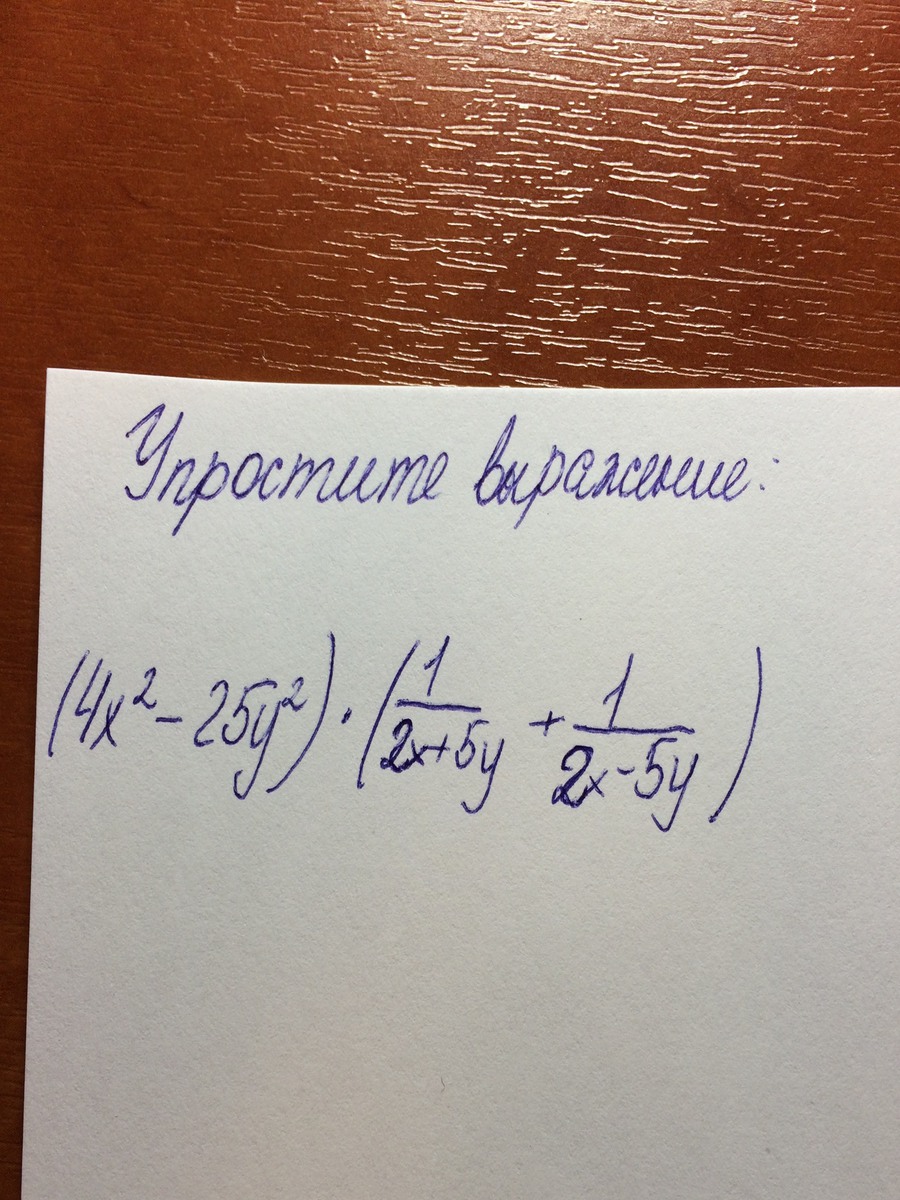 Упростите выражение:
(4x² - 25y²) · (1/(2x+5y) + 1/(2x-5y))